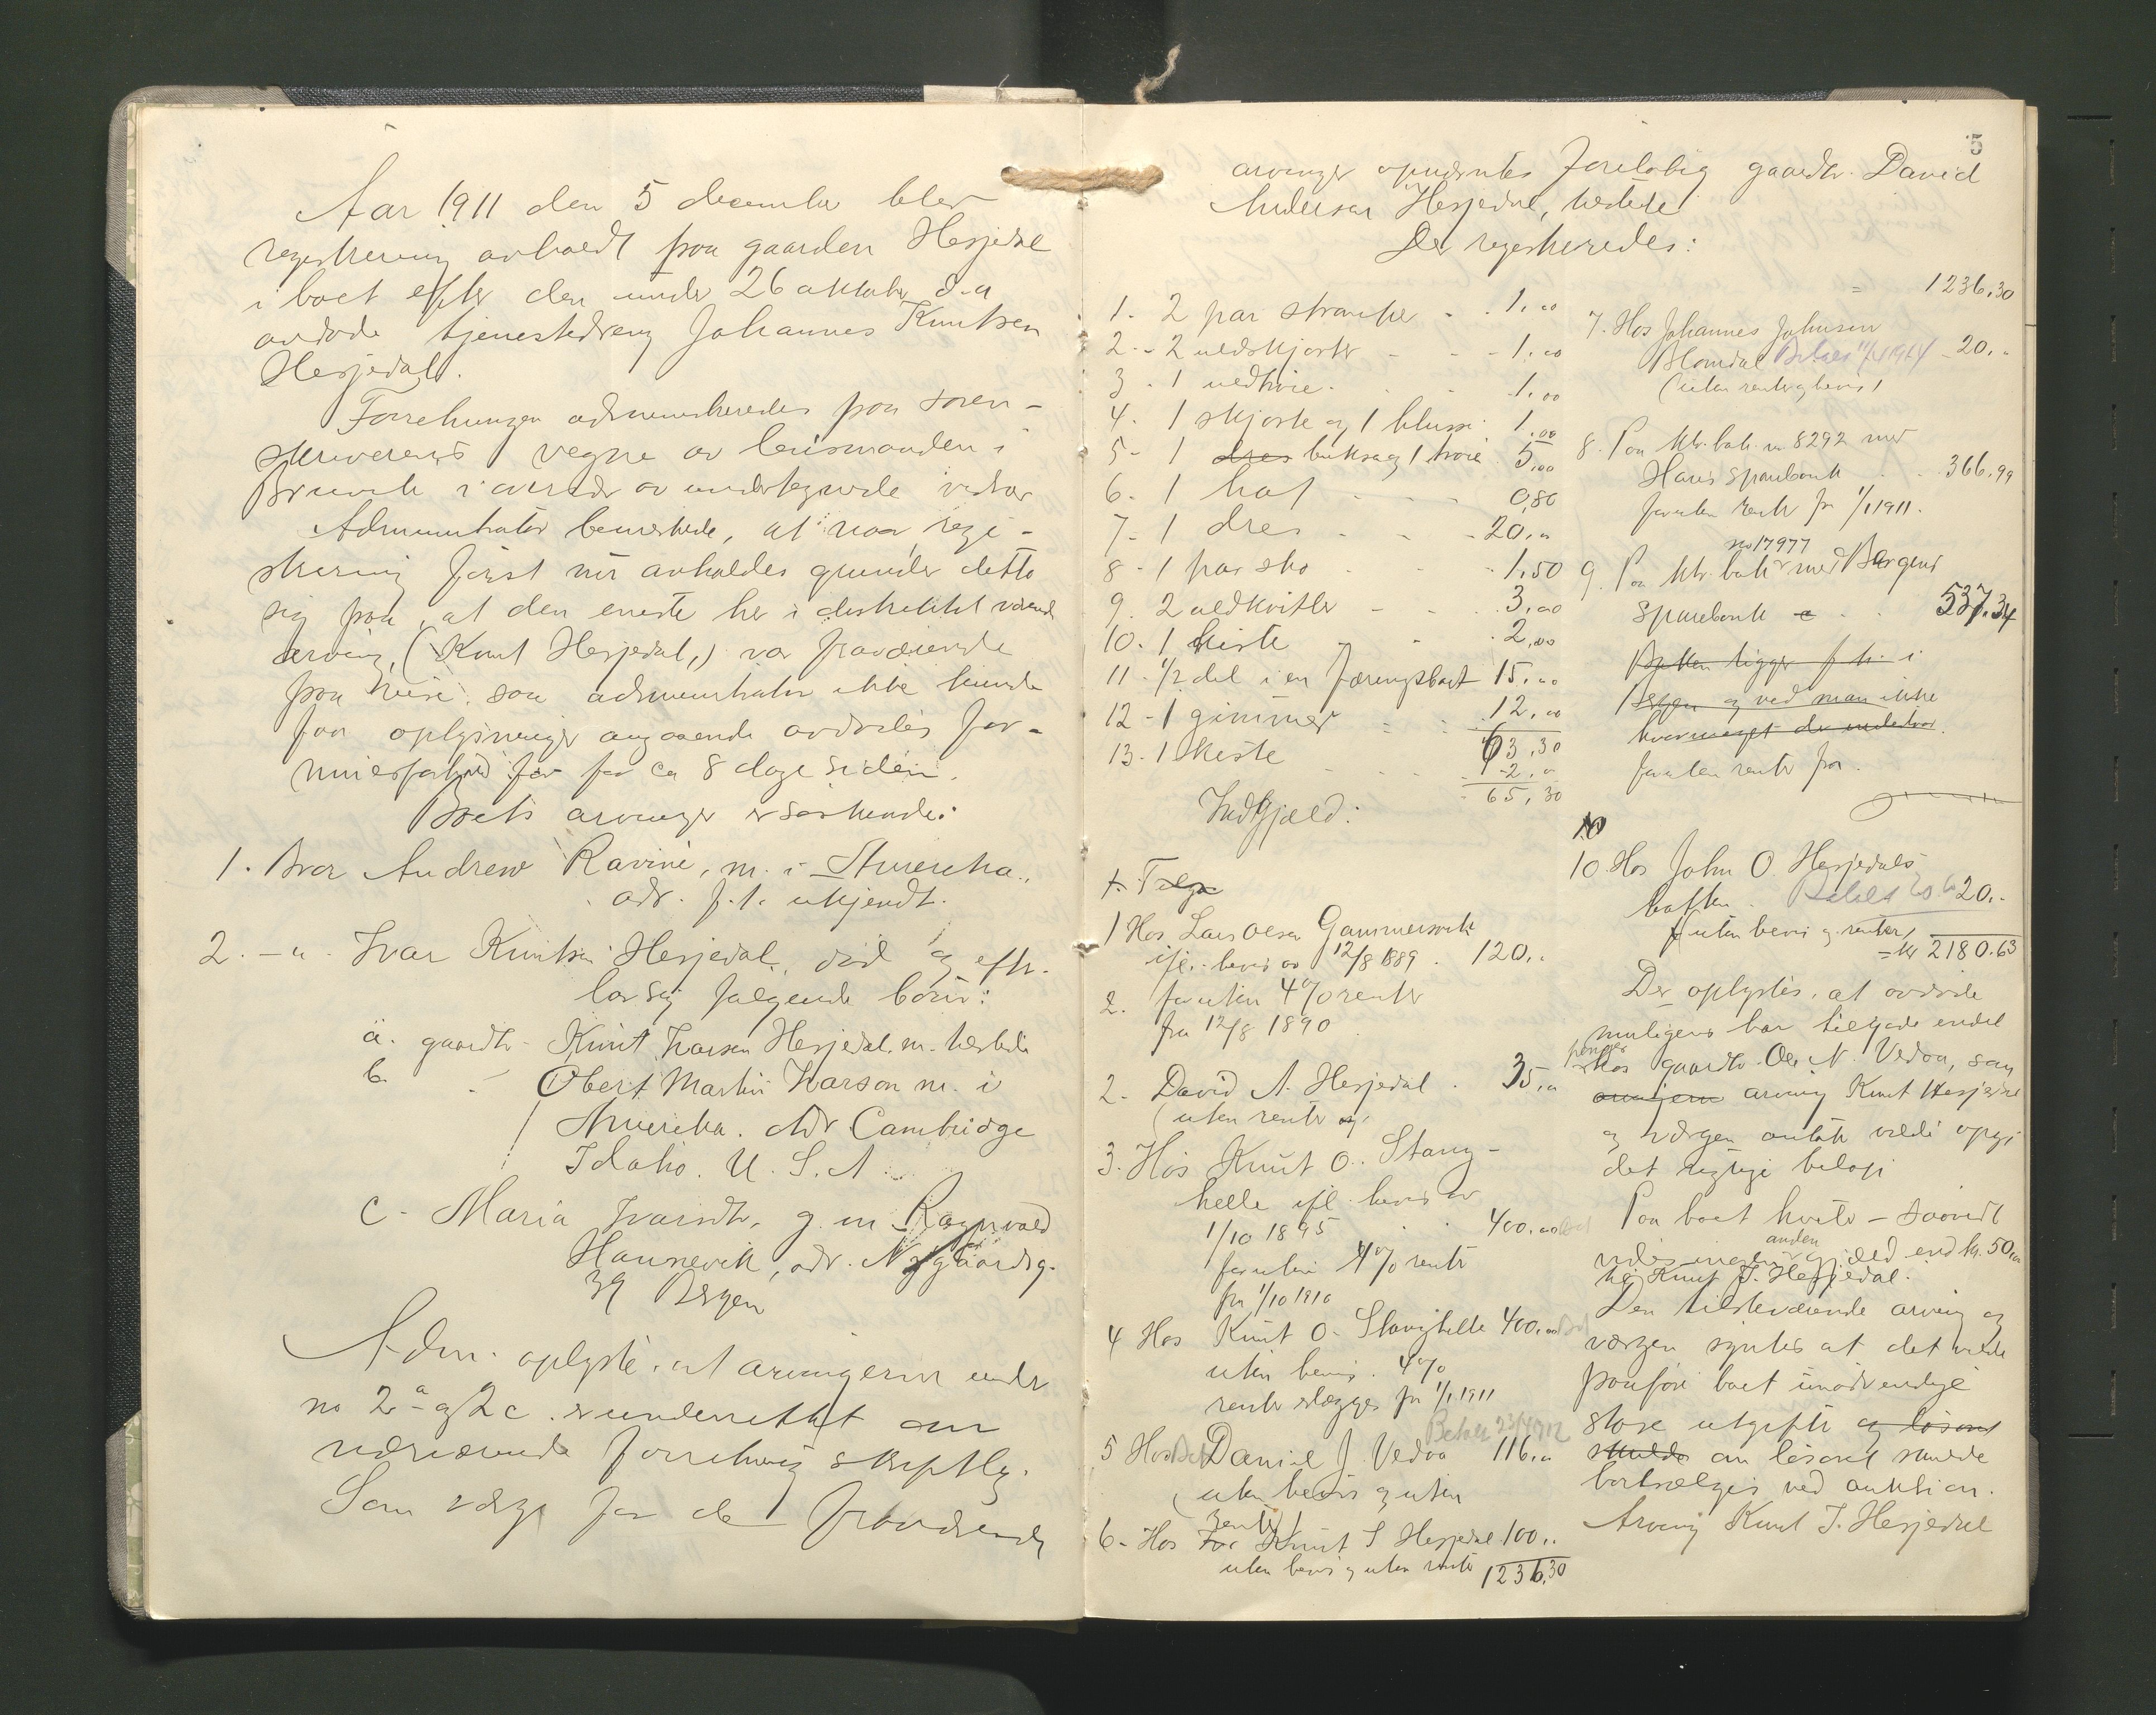 Aar 1911 den 5 december blev
registrering avholdt paa gaarden Hesjedal
i boet efter den under 26 oktober d.a
avdøde tjenestedreng Johannes Knutsen
Hesjedal.
Forretningen administreredes paa soren-
skriverens vegne av lensmanden i
Bruvik i overvær av undertegnede vidner
Administrator bemerkede, at naar regi-
strering først nu avholdes grunder dette
sig paa, at den eneste her i distriktet værende
arving, (Knut Hesjedal,) var fraværende
paa reise. saa administrator ikke kunde
faa oplysninger angaaende avdødes for-
muesforhold før for ca 8 dage siden.
Boets arvinger er søskende:
1. Bror Andrew Ravine, m. i Amerika.,
adr. f. t. ukjendt.
2. - " - Ivar Knutsen Hesjedal, død og efter-
lot sig følgende børn:
a. gaardbr. Knut Ivarsen Hesjedal. m. herstede
b. Obert Martin Ivarson m. i
Amerika. Adr Cambridge
Idaho. U. S. A
c - Maria Ivarsdtr. g. m Ragnvald
Hannevik, adr. Nygaardsg.
39 Bergen
Adm. oplyste. at arvingerne under
no 2 a og 2 c. er underrettet om
nærværende forretning skriftlig.
Som verge for de fraværende
5
arvinger opnævntes foreløbig gaardbr. David
Andersen Hesjedal, herstede
Der registreredes:
1. 2 par strømper - . 1.00
2. - 2 uldskjorter - - - 1.00
3 - 1 uldtrøie - . . 1.00
4. 1 skjorte og 1 bluse . 1.00
5 - 1 dres bukse og 1 trøie 5.00
6. 1 hat - - - - 0,80
7 - 1 dres - - - 20.00
8 - 1 par sko - - 1.50
9. 2 uldkvitler - - . 3.00
10. 1 kiste - - . 2.00
11 - 1/2 del i en færingsbaat 15.00
12 - 1 gimmer - - 12.00
63.30
13. 1 kiste - - - 2.00
65,30
Indgjæld:
1 Hos Lars Olsen Gammersvik
ifl. bevis av 12/8 1889 . 120.
2. foruten 4% renter
fra 12/8 1890
2. David A. Hesjedal . 35.00
(uten renter
3. Hos Knut O. Stang-
helle ifl. bevis av
1/10 1895 . . 400.00
foruten 4% rente
fra 1/10 1910
4 Hos Knut O. Stanghelle 400.00
uten bevis. 4%
rente erlægges fra 1/1 1911
Betalt 23/4 1912
5 Hos Daniel J. Vedaa 116.00
(uten bevis og uten
renter)
6 - Hos Knut I Hesjedal 100..
uten bevis og uten rente 1236.30
= 1236.30
7. Hos Johannes Johnsen
Blomdal Betalt 1914 - 20..
(uten rente og bevis)
8. Paa ktr. bok no 8292 med
Haus Sparebank . . 366.99
foruten rente fra 1/1 1911.
no 17977
9. Paa ktr. bok med Bergens
Sparebank . . 537.34
Boken ligger f. t. i
Bergen og ved man ikke
hvormeget der indestaar.
foruten rente fra.
10 Hos John O. Hesjedals
Betalt 20..
(uten bevis og renter)
= kr 2180.63
Der oplystes, at avdøde
muligens har tilgode endel
penger
hos gaardbr. Ole N. Vedaa, som
arving Knut Hesjedal
og vergen antok vilde opgi
det rigtige beløp
Paa boet hvile - saavidt
anden
vides ingen gjæld end kr. 50.00
til Knut I. Hesjedal.
Den tilstedeværende arving og
vergen syntes at det vilde
paaføre boet unødvendige
store utgifter og løsøret
skulde om løsøret skulde
bortsælges ved auktion.
Arving Knut I. Hesjedal